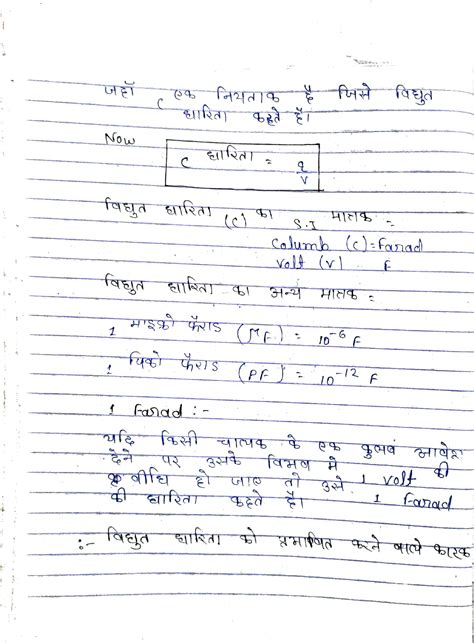 जहाँ C एक नियताक है जिसे विद्युत
धारिता कहते हैं।
Now
C धारिता = q/V
विद्युत धारिता (C) का S.I मात्तक =
Columb (C) = Farad
Volt (V) F
विद्युत धारिता का अन्य मात्तक =
1 माइक्रो फैराड (MF) = 10⁻⁶ F
1 पिको फैराड (PF) = 10⁻¹² F
1 Farad :-
यदि किसी चालक के एक कुलवं आवेश
देने पर उसके विभव मे 1 Volt की
वीधि हो जाए तो उसे 1 Farad
की धारिता कहते है।
:- विद्युत धारिता को प्रभावित करने वाले कारक